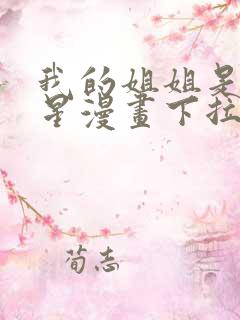 我的姐姐是
星漫畫下拉
荀志